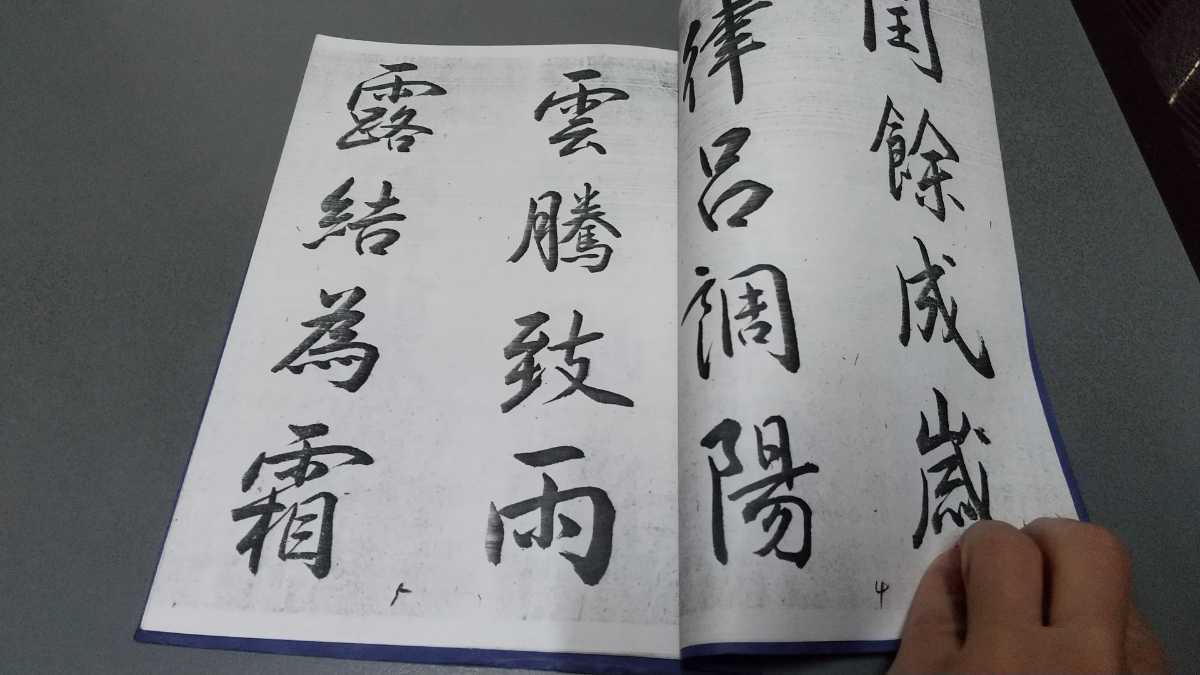 閏餘成歲
律呂調陽
4
雲騰致雨
露結為霜
5